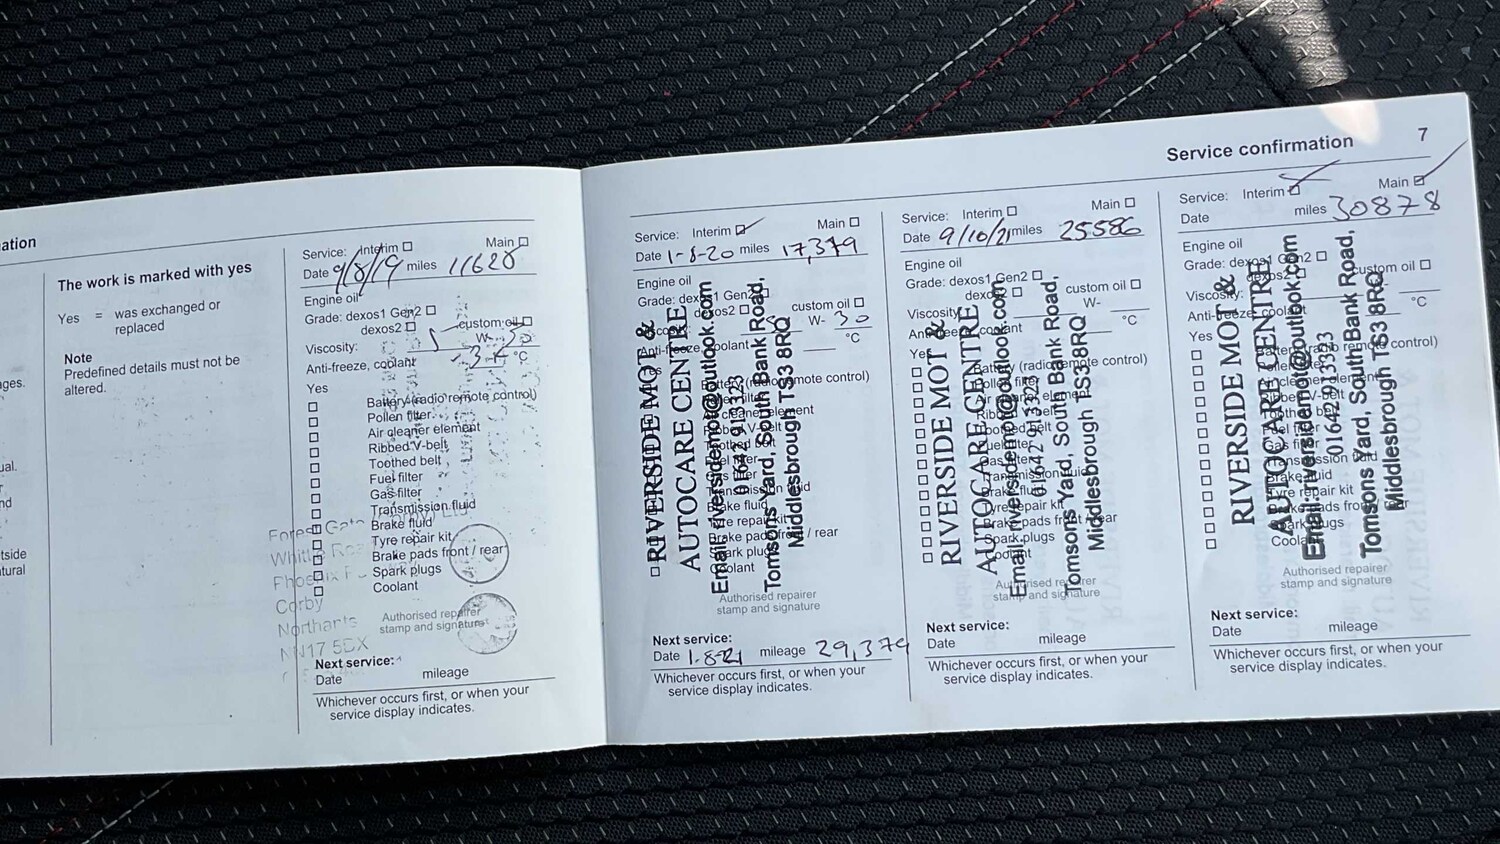 ation
ages.
ual.
nd
tside
tural
The work is marked with yes
Yes = was exchanged or
replaced
Note
Predefined details must not be
altered.
Service: Interim
Main
Date 9/8/19 miles 11628
Engine oil
Grade: dexos1 Gen2
dexos2
custom oil
Viscosity: 5 W- 30
Anti-freeze, coolant °C
Yes
Battery (radio remote control)
Pollen filter
Air cleaner element
Ribbed V-belt
Toothed belt
Fuel filter
Gas filter
Transmission fluid
Brake fluid
Tyre repair kit
Brake pads front / rear
Spark plugs
Coolant
Corby
Northants
NN17 5DX
Authorised repairer
stamp and signature
Next service:
Date mileage
Whichever occurs first, or when your
service display indicates.
Service confirmation 7
Service: Interim
Main
Date 1-8-20 miles 17,379
Engine oil
Grade: dexos1 Gen2
dexos2
custom oil
W- 30
Anti-freeze, coolant °C
Battery (radio remote control)
Brake fluid
Tyre repair kit
Brake pads front / rear
Spark plugs
Coolant
RIVERSIDE MOT &
AUTOCARE CENTRE
Email:riversidemot@outlook.com
01642 913323
Tomsons Yard, South Bank Road,
Middlesbrough TS3 8RQ
Authorised repairer
stamp and signature
Next service:
Date 1-8-21 mileage 29,379
Whichever occurs first, or when your
service display indicates.
Service: Interim
Main
Date 9/10/21 miles 25586
Engine oil
Grade: dexos1 Gen2
dexos2
custom oil
Viscosity: W-
Anti-freeze, coolant °C
Yes
Battery (radio remote control)
Pollen filter
Transmission fluid
Brake fluid
Tyre repair kit
Brake pads front / rear
Spark plugs
Coolant
RIVERSIDE MOT &
AUTOCARE CENTRE
Email:riversidemot@outlook.com
01642 913323
Tomsons Yard, South Bank Road,
Middlesbrough TS3 8RQ
Authorised repairer
stamp and signature
Next service:
Date mileage
Whichever occurs first, or when your
service display indicates.
Service: Interim
Main
Date miles 30878
Engine oil
Grade: dexos1 Gen2
dexos2
custom oil
Viscosity:
Anti-freeze, coolant °C
Yes
Battery (radio remote control)
Pollen filter
Air cleaner element
Ribbed V-belt
Toothed belt
Fuel filter
Gas filter
Transmission fluid
Brake fluid
Tyre repair kit
Brake pads front / rear
Spark plugs
Coolant
RIVERSIDE MOT &
AUTOCARE CENTRE
Email:riversidemot@outlook.com
01642 913323
Tomsons Yard, South Bank Road,
Middlesbrough TS3 8RQ
Authorised repairer
stamp and signature
Next service:
Date mileage
Whichever occurs first, or when your
service display indicates.